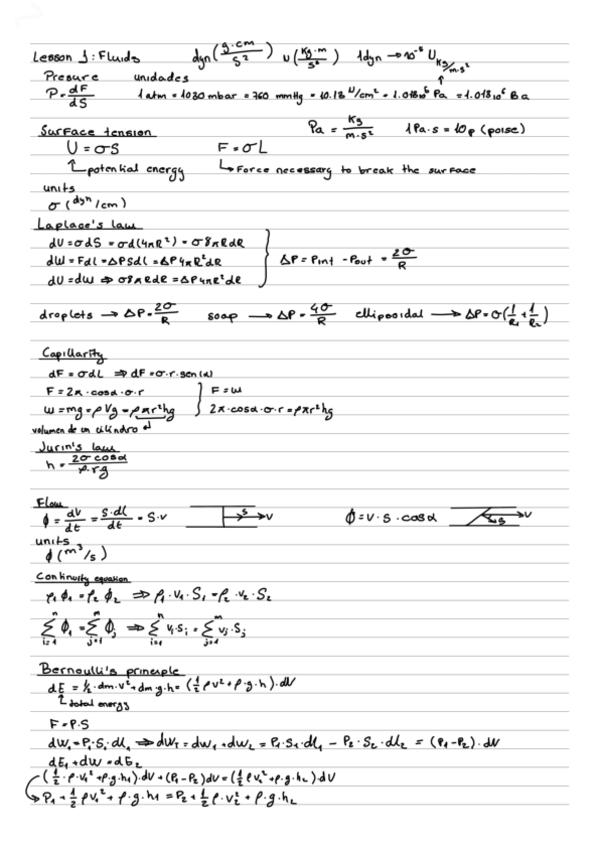 Lesson 1: Fluids dyn(g·cm/s²) N(kg·m/s²) 1dyn → 10⁻⁵ N
kg/m·s²
Presure unidades
P = dF/dS 1 atm = 1030 mbar = 760 mmHg = 10.13 N/cm² = 1.013·10⁵ Pa = 1.013·10⁶ Ba
Pa = kg/m·s² 1Pa·s = 10p (poise)
Surface tension
U = σS F = σL
potential energy Force necessary to break the surface
units
σ (dyn/cm)
Laplace's law
dU = σdS = σd(4πR²) = σ8πRdR
dW = Fdl = ΔPSdl = ΔP4πR²dR ΔP = Pint - Pout = 2σ/R
dU = dW ⇒ σ8πRdR = ΔP4πR²dR
droplets → ΔP = 2σ/R soap → ΔP = 4σ/R ellipsoidal → ΔP = σ(1/R₁ + 1/R₂)
Capillarity
dF = σdL ⇒ dF = σ·r·sen(α)
F = 2π·cosα·σ·r F = w
w = mg = ρVg = ρπr²hg 2π·cosα·σ·r = ρπr²hg
volumen de un cilindro
Jurin's law
h = 2σcosα/ρ·rg
Flow
ϕ = dV/dt = S·dl/dt = S·v S v ϕ = v·S·cosα S v
units
ϕ(m³/s)
Continuity equation
ρ₁ϕ₁ = ρ₂ϕ₂ ⇒ ρ₁·v₁·S₁ = ρ₂·v₂·S₂
∑ⁿᵢ₌₁ ϕᵢ = ∑ᵐⱼ₌₁ ϕⱼ ⇒ ∑ⁿᵢ₌₁ vᵢ·Sᵢ = ∑ᵐⱼ₌₁ vⱼ·Sⱼ
Bernoulli's principle
dE = ½·dm·v² + dm·g·h = (½ρv² + ρ·g·h)·dV
total energy
F = P·S
dW₁ = P₁·S₁·dl₁ ⇒ dWT = dW₁ + dW₂ = P₁·S₁·dl₁ - P₂·S₂·dl₂ = (P₁-P₂)·dV
dE₁ + dW = dE₂
(½·ρ·v₁² + ρ·g·h₁)·dV + (P₁-P₂)dV = (½ρv₂² + ρ·g·h₂)dV
P₁ + ½ρv₁² + ρ·g·h₁ = P₂ + ½ρ·v₂² + ρ·g·h₂